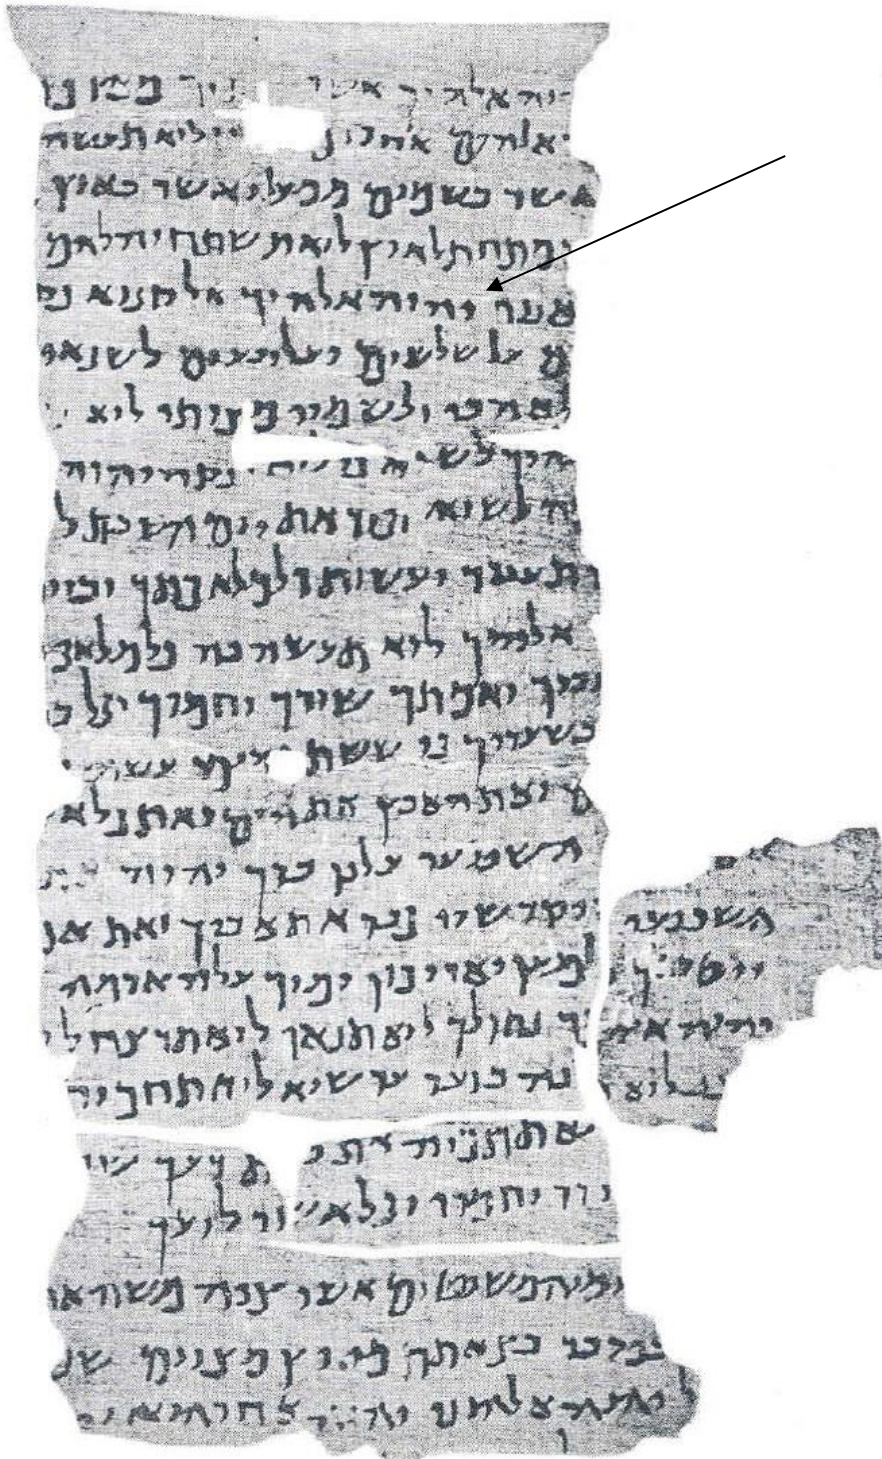 אלהיך אשר
אלהים אחרים תעשה
אשר בשמים ממעל ואשר בארץ
מתחת לארץ לוא תשתחוה להם
יהוה אלהיך אל קנוא
על שלשים ועל רבעים לשנאי
לאהבי ולשמרי מצותי לוא
ינקה יהוה
לשוא זכור את יום השבת
תעבוד ועשית כל מלאכתך וביום
אלהיך לוא תעשה בה כל מלאכה
ואמתך שורך וחמרך וכל
בשעריך כי ששת ימים עשה
ואת הארץ את הים ואת כל
השביעי על כן ברך יהוה
השביעי ויקדשיו כבד את אביך ואת
ולמען יאריכון ימיך על האדמה
יהוה אלהיך נתן לך לוא תנאף לוא תרצח
לוא ברעך עד שוא לוא תחמוד
תתאוה את רעך
וחמרו וכל אשר לרעך
והמשפטים אשר צוה משה את
במדבר בצאתם מארץ מצרים
יהוה אלהינו יהוה אחד הוא